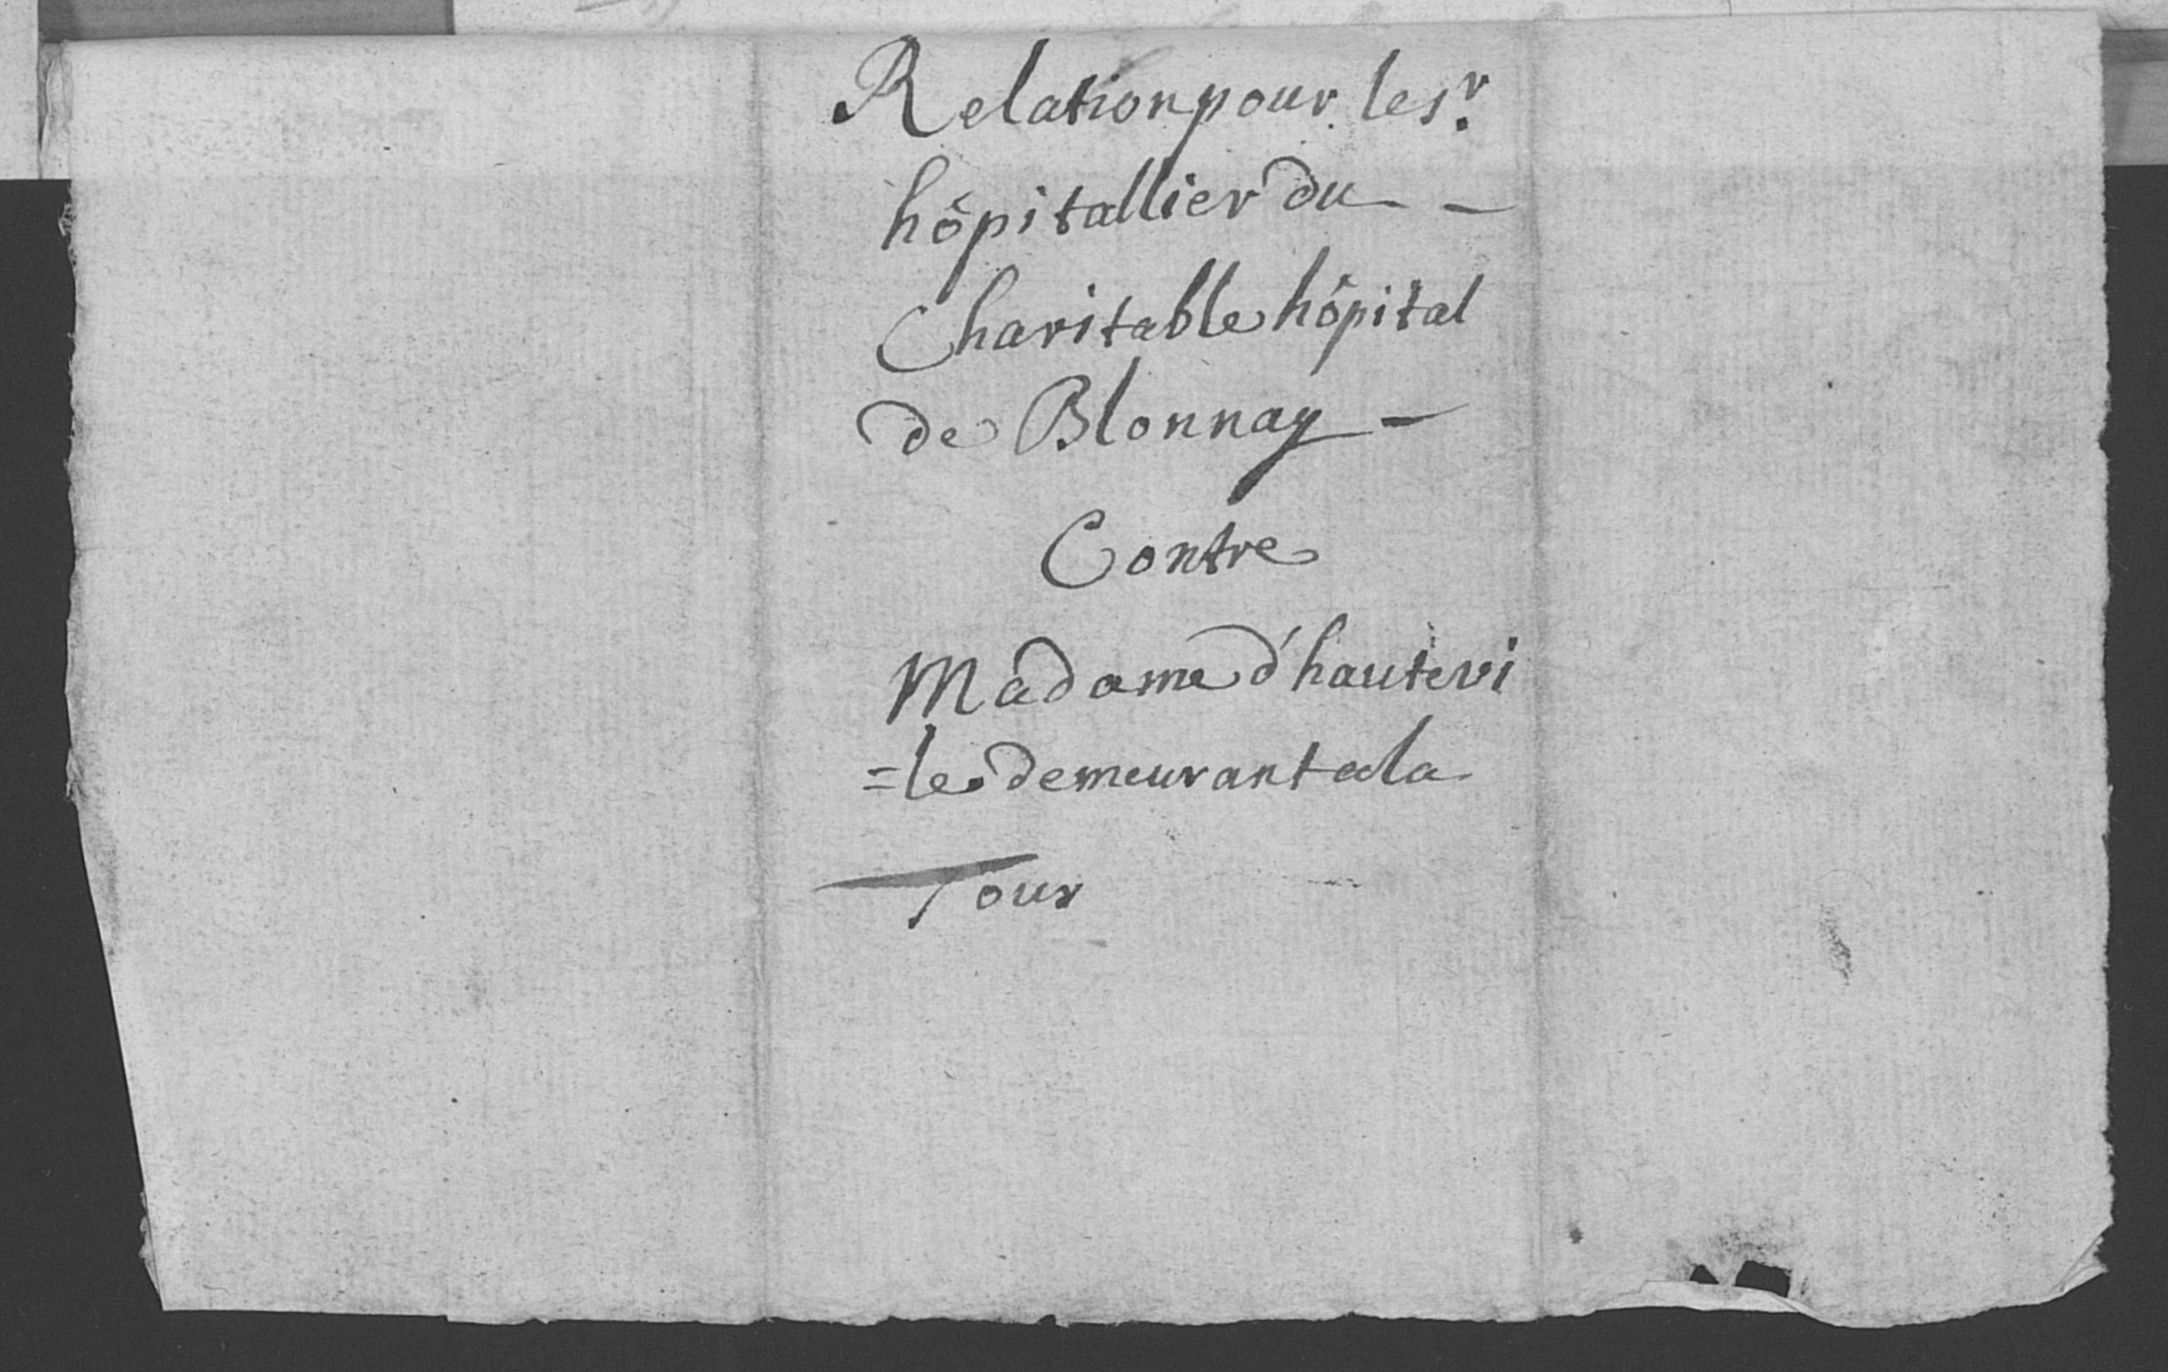 Relation pour le sr.
hôpitallier du -
Charitable hôpital
de Blonnay -
Contre
Madame d'hautevi
=le demeurant a la
Tour